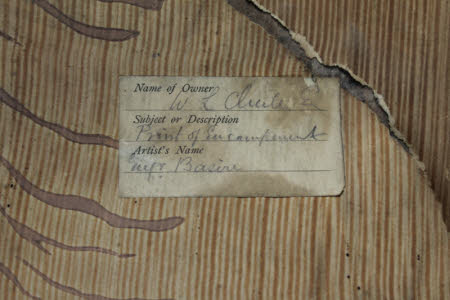 Name of Owner
W L
Subject or Description
Print of Encampment
Artist's Name
Basire